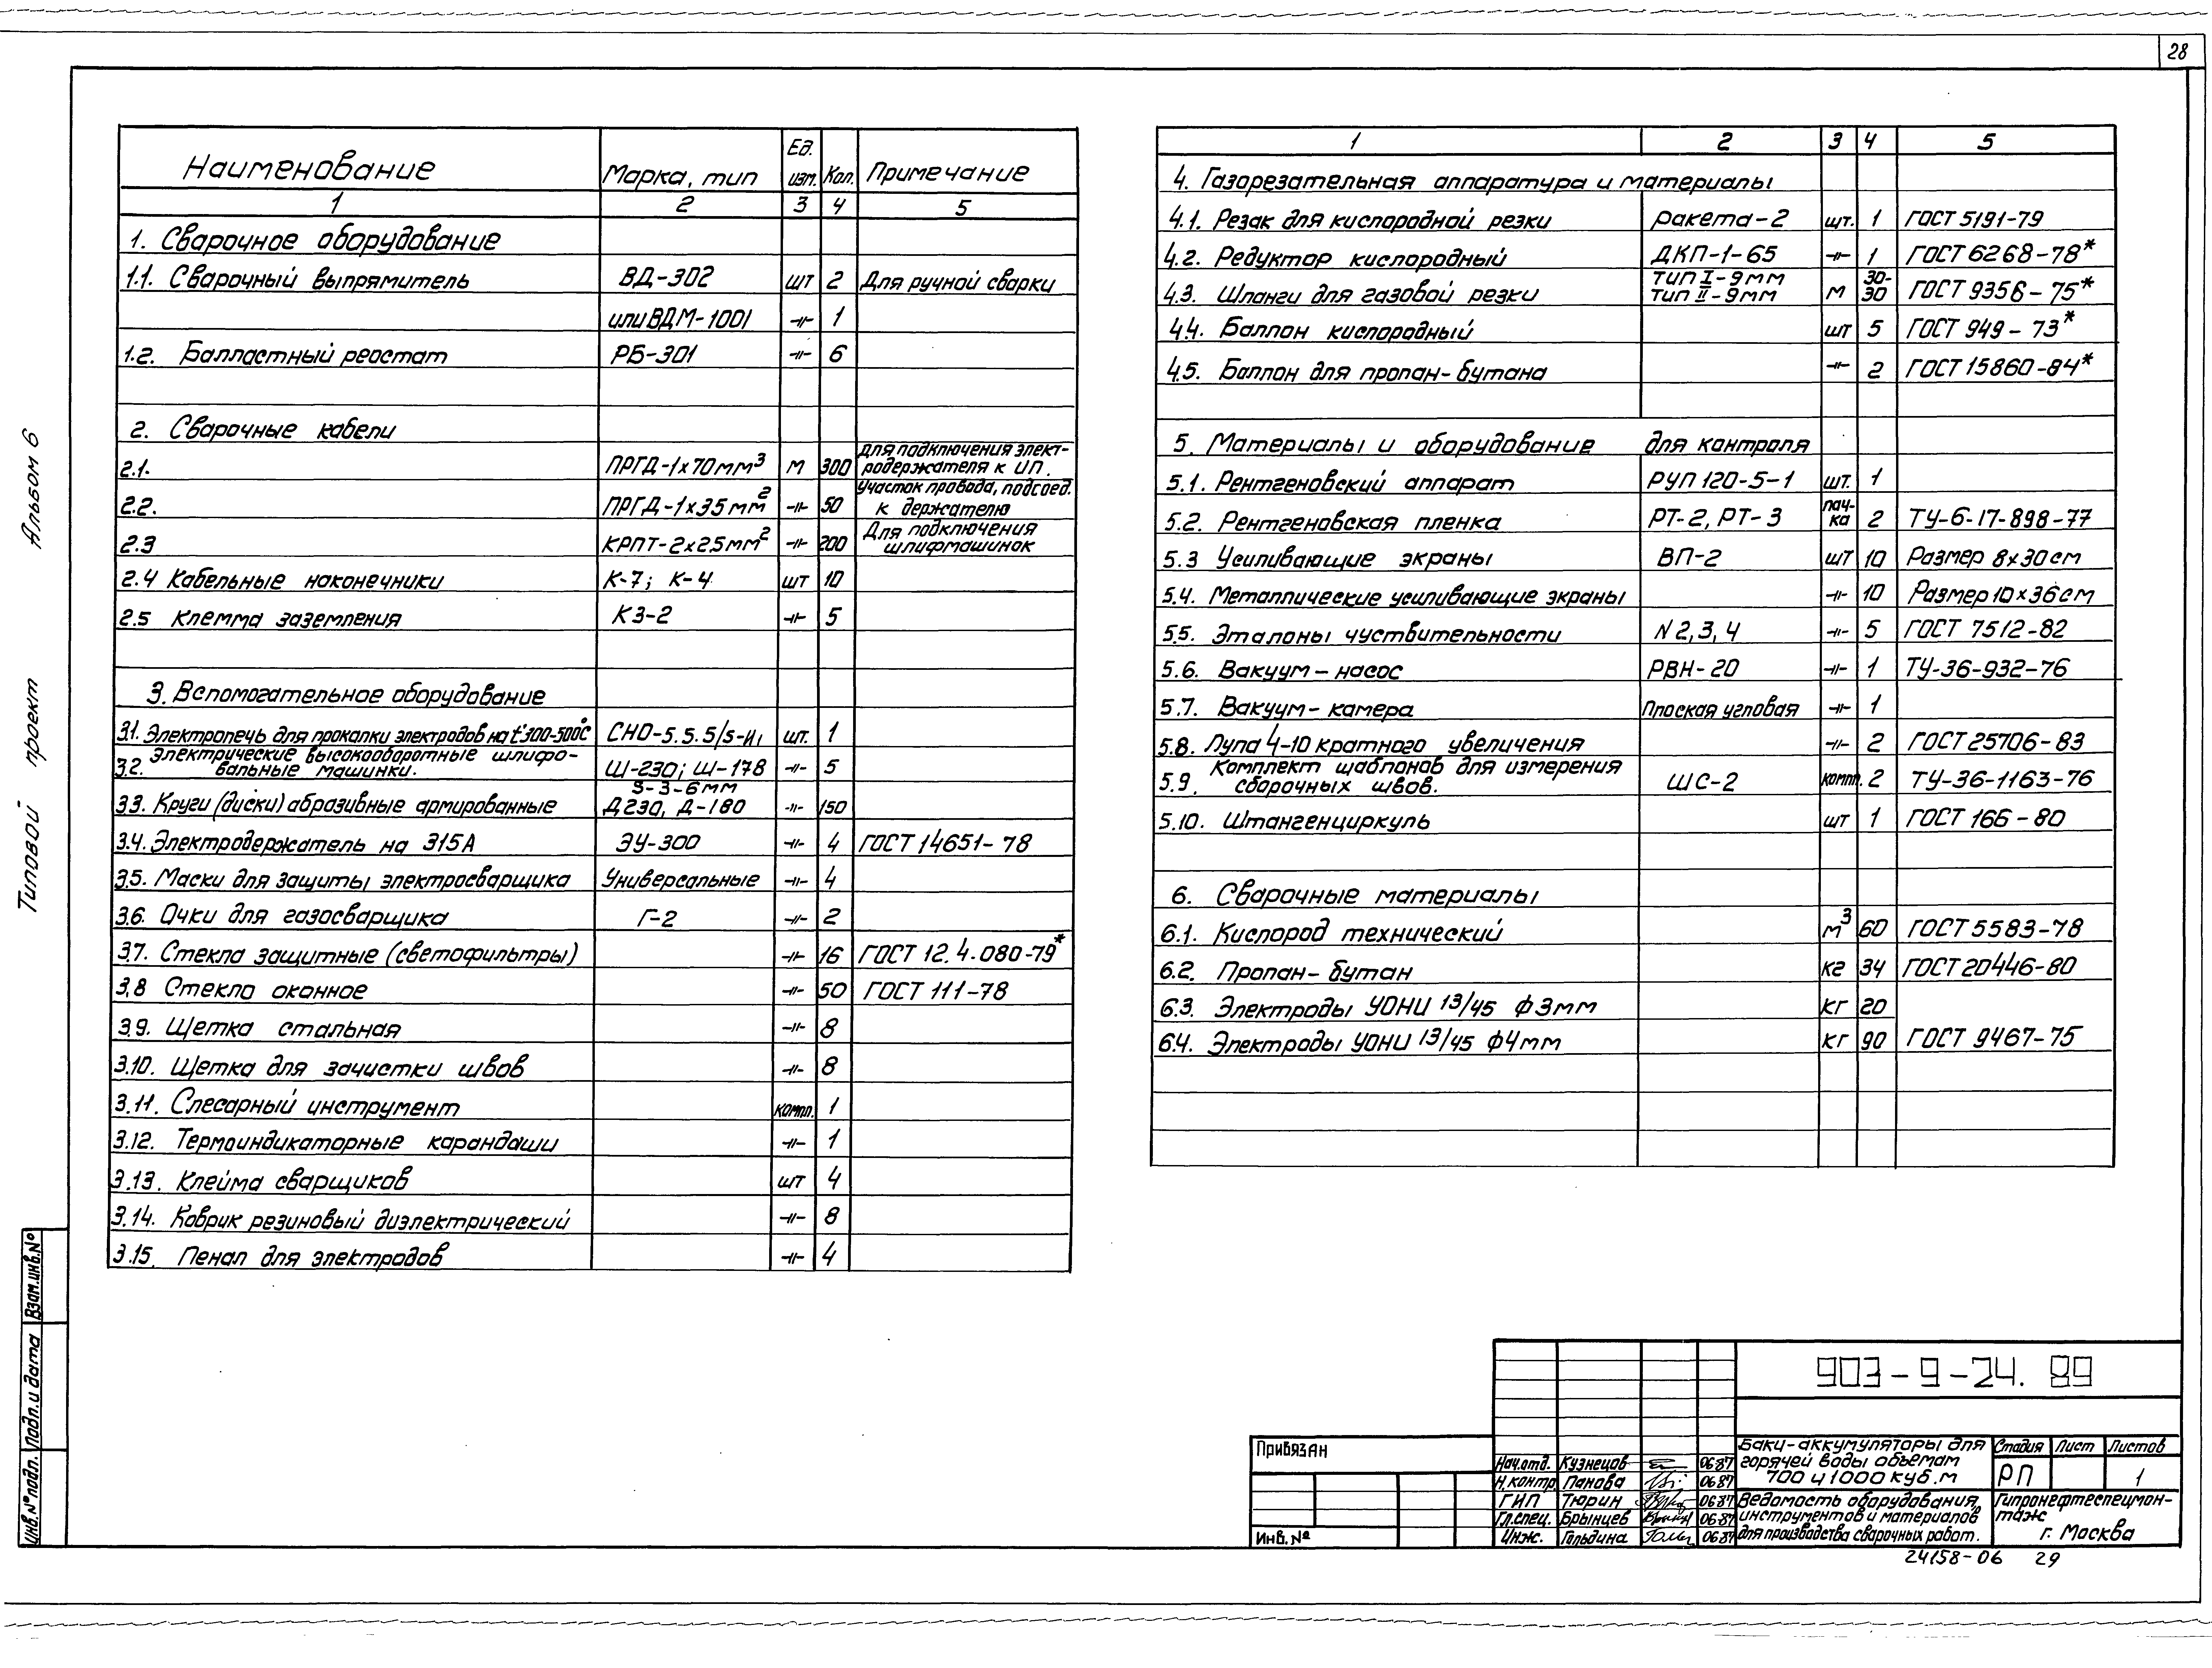 28
Альбом 6
Типовой проект
Наименование Марка, тип Ед. изм. Кол. Примечание
1 2 3 4 5
1. Сварочное оборудование
1.1. Сварочный выпрямитель ВД-302 шт 2 Для ручной сварки
или ВДМ-1001 -"- 1
1.2. Балластный реостат РБ-301 -"- 6
2. Сварочные кабели
2.1. ПРГД-1х70мм³ м 300 Для подключения элект-
родержателя к ИП.
2.2. ПРГД-1х35мм² -"- 50 Участок провода, подсоед.
к держателю
2.3 КРПТ-2х25мм² -"- 200 Для подключения
шлифмашинок
2.4 Кабельные наконечники К-7; К-4 шт 10
2.5 Клемма заземления КЗ-2 -"- 5
3. Вспомогательное оборудование
3.1. Электропечь для прокалки электродов на t°300-500°С СНО-5.5.5/5-И1 шт. 1
3.2. Электрические высокооборотные шлифо-
вальные машинки. Ш-230; Ш-178 -"- 5
S-3-6мм
3.3. Круги (диски) абразивные армированные Д230, Д-180 -"- 150
3.4. Электродержатель на 315А ЭУ-300 -"- 4 ГОСТ 14651-78
3.5. Маски для защиты электросварщика Универсальные -"- 4
3.6. Очки для газосварщика Г-2 -"- 2
3.7. Стекла защитные (светофильтры) -"- 16 ГОСТ 12.4.080-79*
3.8 Стекло оконное -"- 50 ГОСТ 111-78
3.9. Щетка стальная -"- 8
3.10. Щетка для зачистки швов -"- 8
3.11. Слесарный инструмент компл. 1
3.12. Термоиндикаторные карандаши -"- 1
3.13. Клейма сварщиков шт 4
3.14. Коврик резиновый диэлектрический -"- 8
3.15. Пенал для электродов -"- 4
1 2 3 4 5
4. Газорезательная аппаратура и материалы
4.1. Резак для кислородной резки ракета-2 шт. 1 ГОСТ 5191-79
4.2. Редуктор кислородный ДКП-1-65 -"- 1 ГОСТ 6268-78*
4.3. Шланги для газовой резки тип I-9мм
тип II-9мм м 30-
30 ГОСТ 9356-75*
4.4. Баллон кислородный шт 5 ГОСТ 949-73*
4.5. Баллон для пропан-бутана -"- 2 ГОСТ 15860-84*
5. Материалы и оборудование для контроля
5.1. Рентгеновский аппарат РУП 120-5-1 шт. 1
5.2. Рентгеновская пленка РТ-2, РТ-3 пач-
ка 2 ТУ-6-17-898-77
5.3 Усиливающие экраны ВП-2 шт 10 Размер 8х30см
5.4. Металлические усиливающие экраны -"- 10 Размер 10х36см
5.5. Эталоны чуствительности N 2, 3, 4 -"- 5 ГОСТ 7512-82
5.6. Вакуум-насос РВН-20 -"- 1 ТУ-36-932-76
5.7. Вакуум-камера Плоская угловая -"- 1
5.8. Лупа 4-10 кратного увеличения -"- 2 ГОСТ 25706-83
5.9. Комплект шаблонов для измерения
сборочных швов. ШС-2 компл. 2 ТУ-36-1163-76
5.10. Штангенциркуль шт 1 ГОСТ 166-80
6. Сварочные материалы
6.1. Кислород технический м³ 60 ГОСТ 5583-78
6.2. Пропан-бутан кг 34 ГОСТ 20446-80
6.3. Электроды УОНИ 13/45 ф3мм кг 20
6.4. Электроды УОНИ 13/45 ф4мм кг 90 ГОСТ 9467-75
Взам.инв.№
Подп. и дата
Инв.№ подп.
Привязан
Инв. №
Нач.отд. Кузнецов 06.87
Н.контр. Панова 06.87
ГИП Тюрин 06.87
Гл.спец. Брынцев 06.87
Инж. Гольдина 06.87
903-9-24.89
Баки-аккумуляторы для
горячей воды объемам
700 и 1000 куб.м
Стадия Лист Листов
РП 1
Ведомость оборудования,
инструментов и материалов
для производства сварочных работ.
Гипронефтеспецмон-
таж
г. Москва
24158-06 29